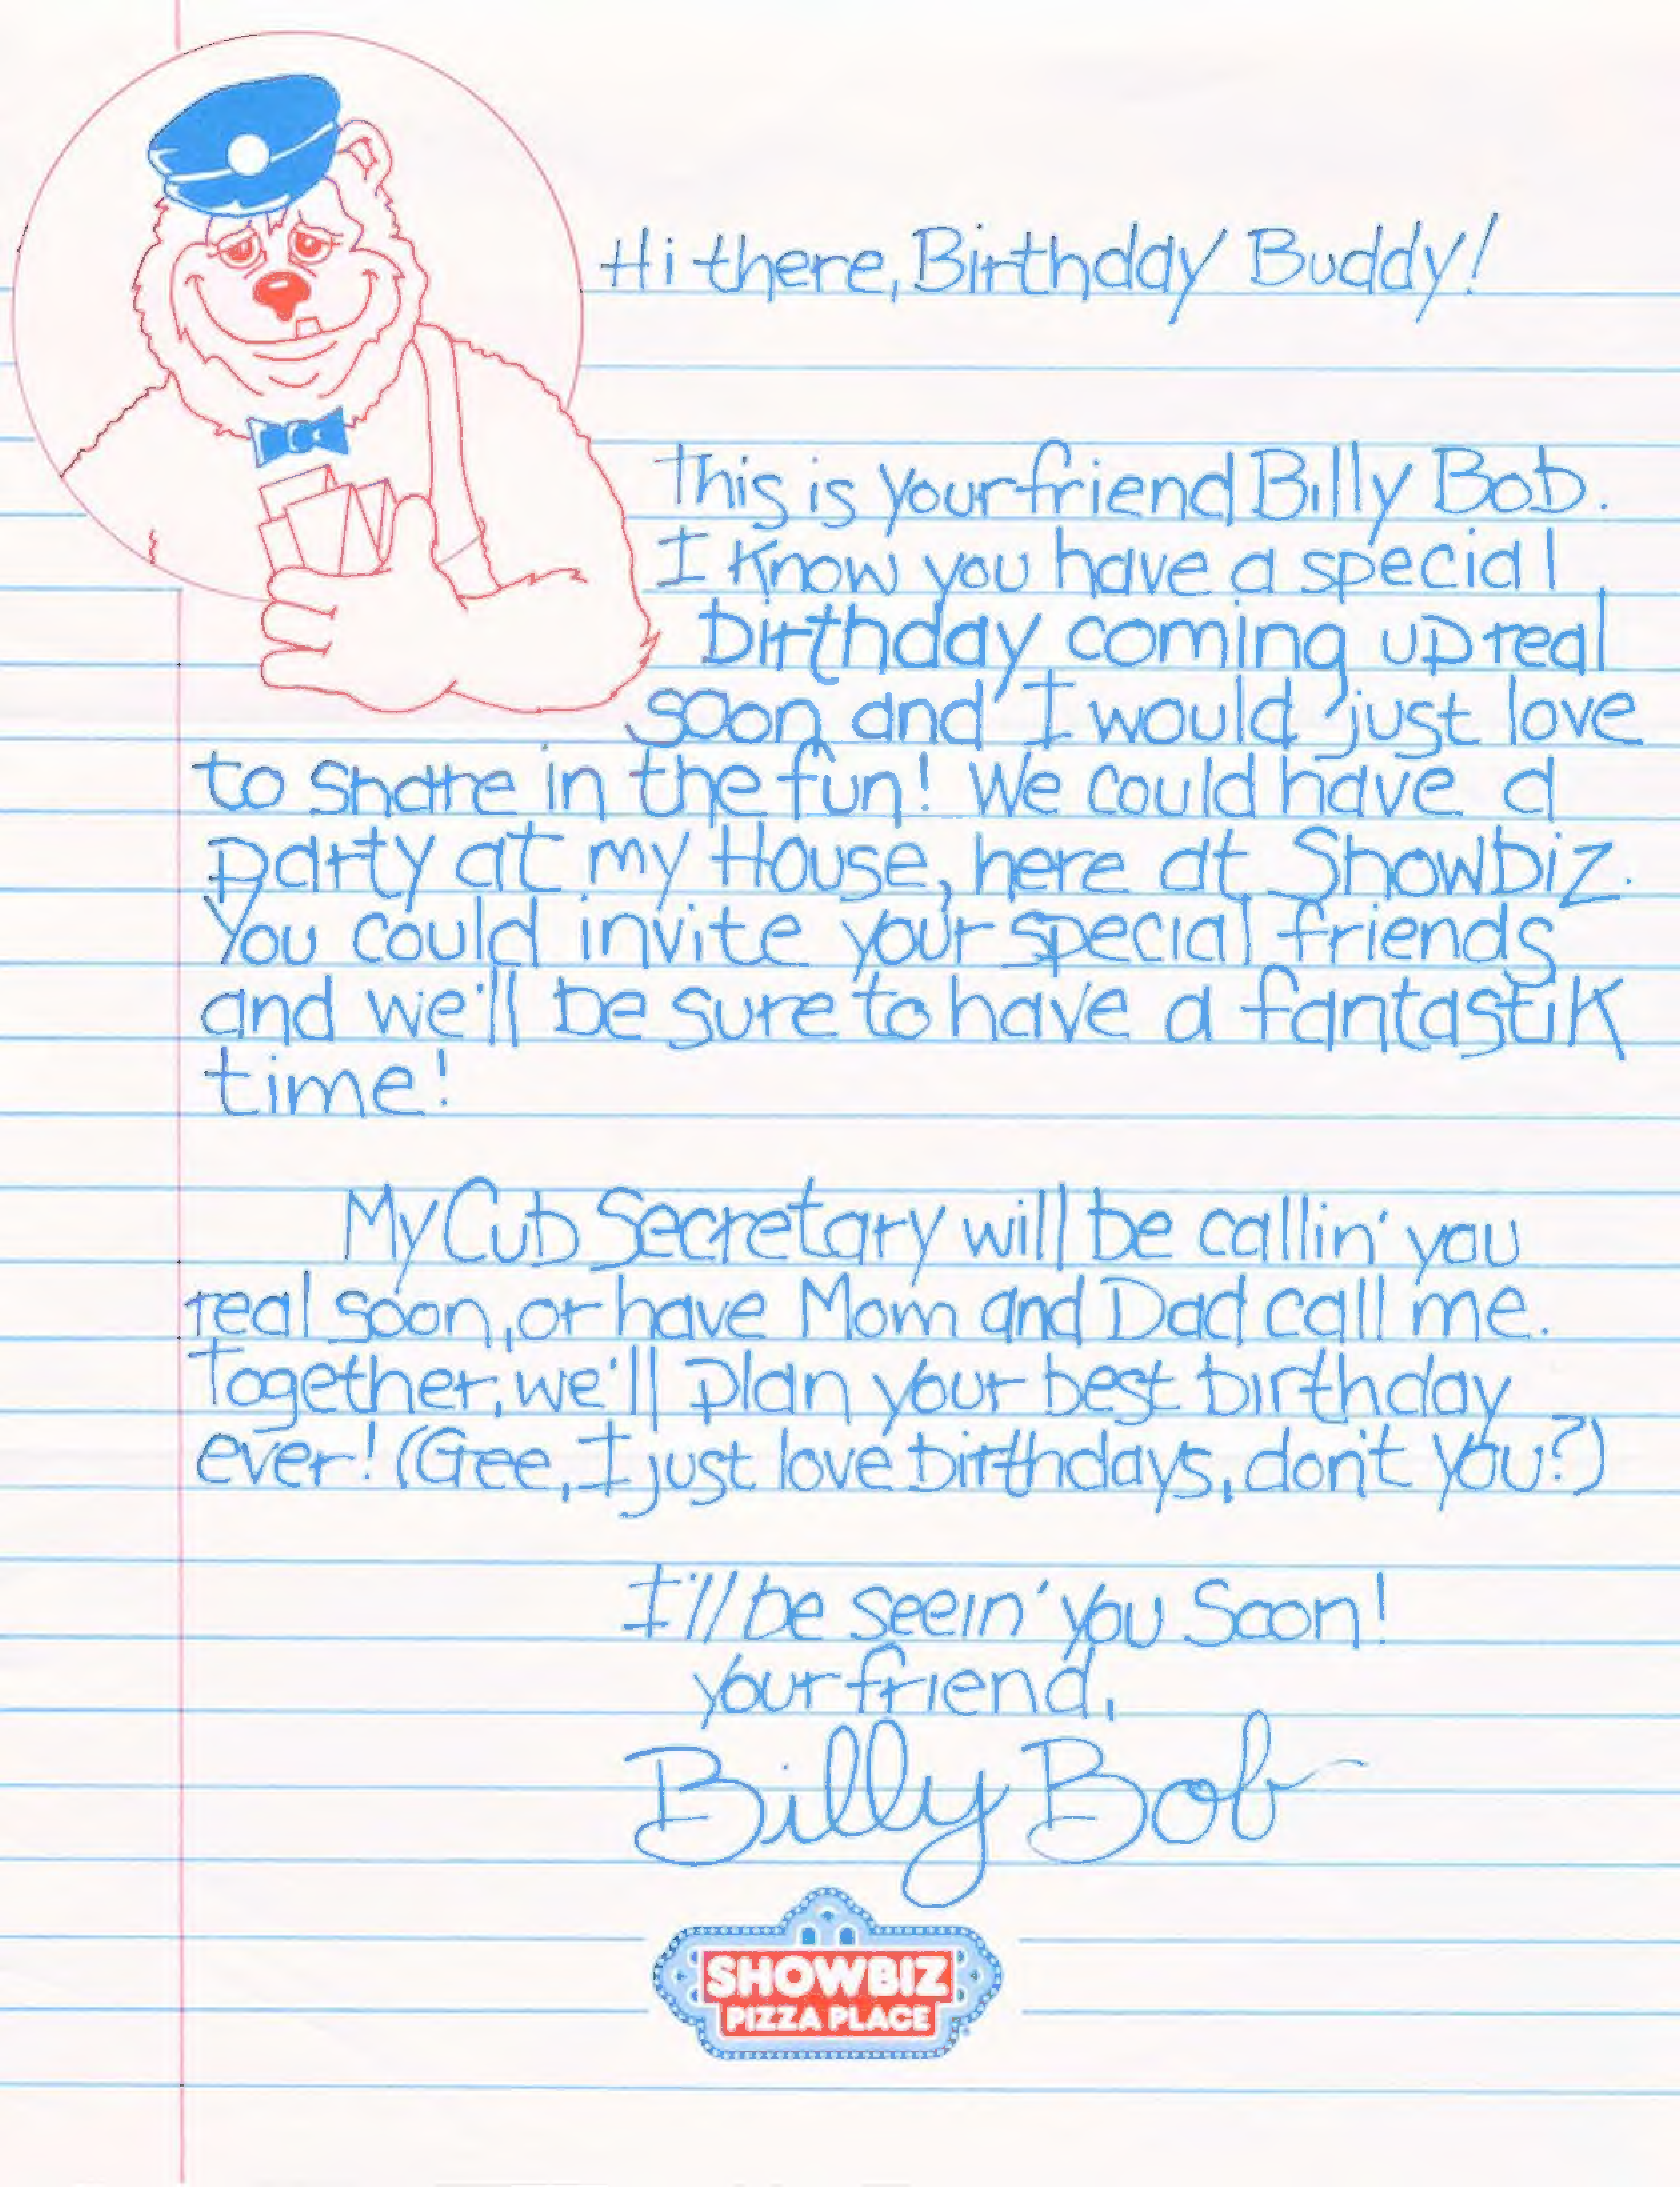 Hi there, Birthday Buddy!
This is your friend Billy Bob.
I know you have a special
birthday coming up real
soon and I would just love
to share in the fun! We could have a
party at my House, here at Showbiz.
You could invite your special friends
and we'll be sure to have a fantastik
time!
My Cub Secretary will be callin' you
real soon, or have Mom and Dad call me.
Together, we'll plan your best birthday
ever! (Gee, I just love birthdays, don't you?)
I'll be seein' you Soon!
your friend,
Billy Bob
SHOWBIZ
PIZZA PLACE